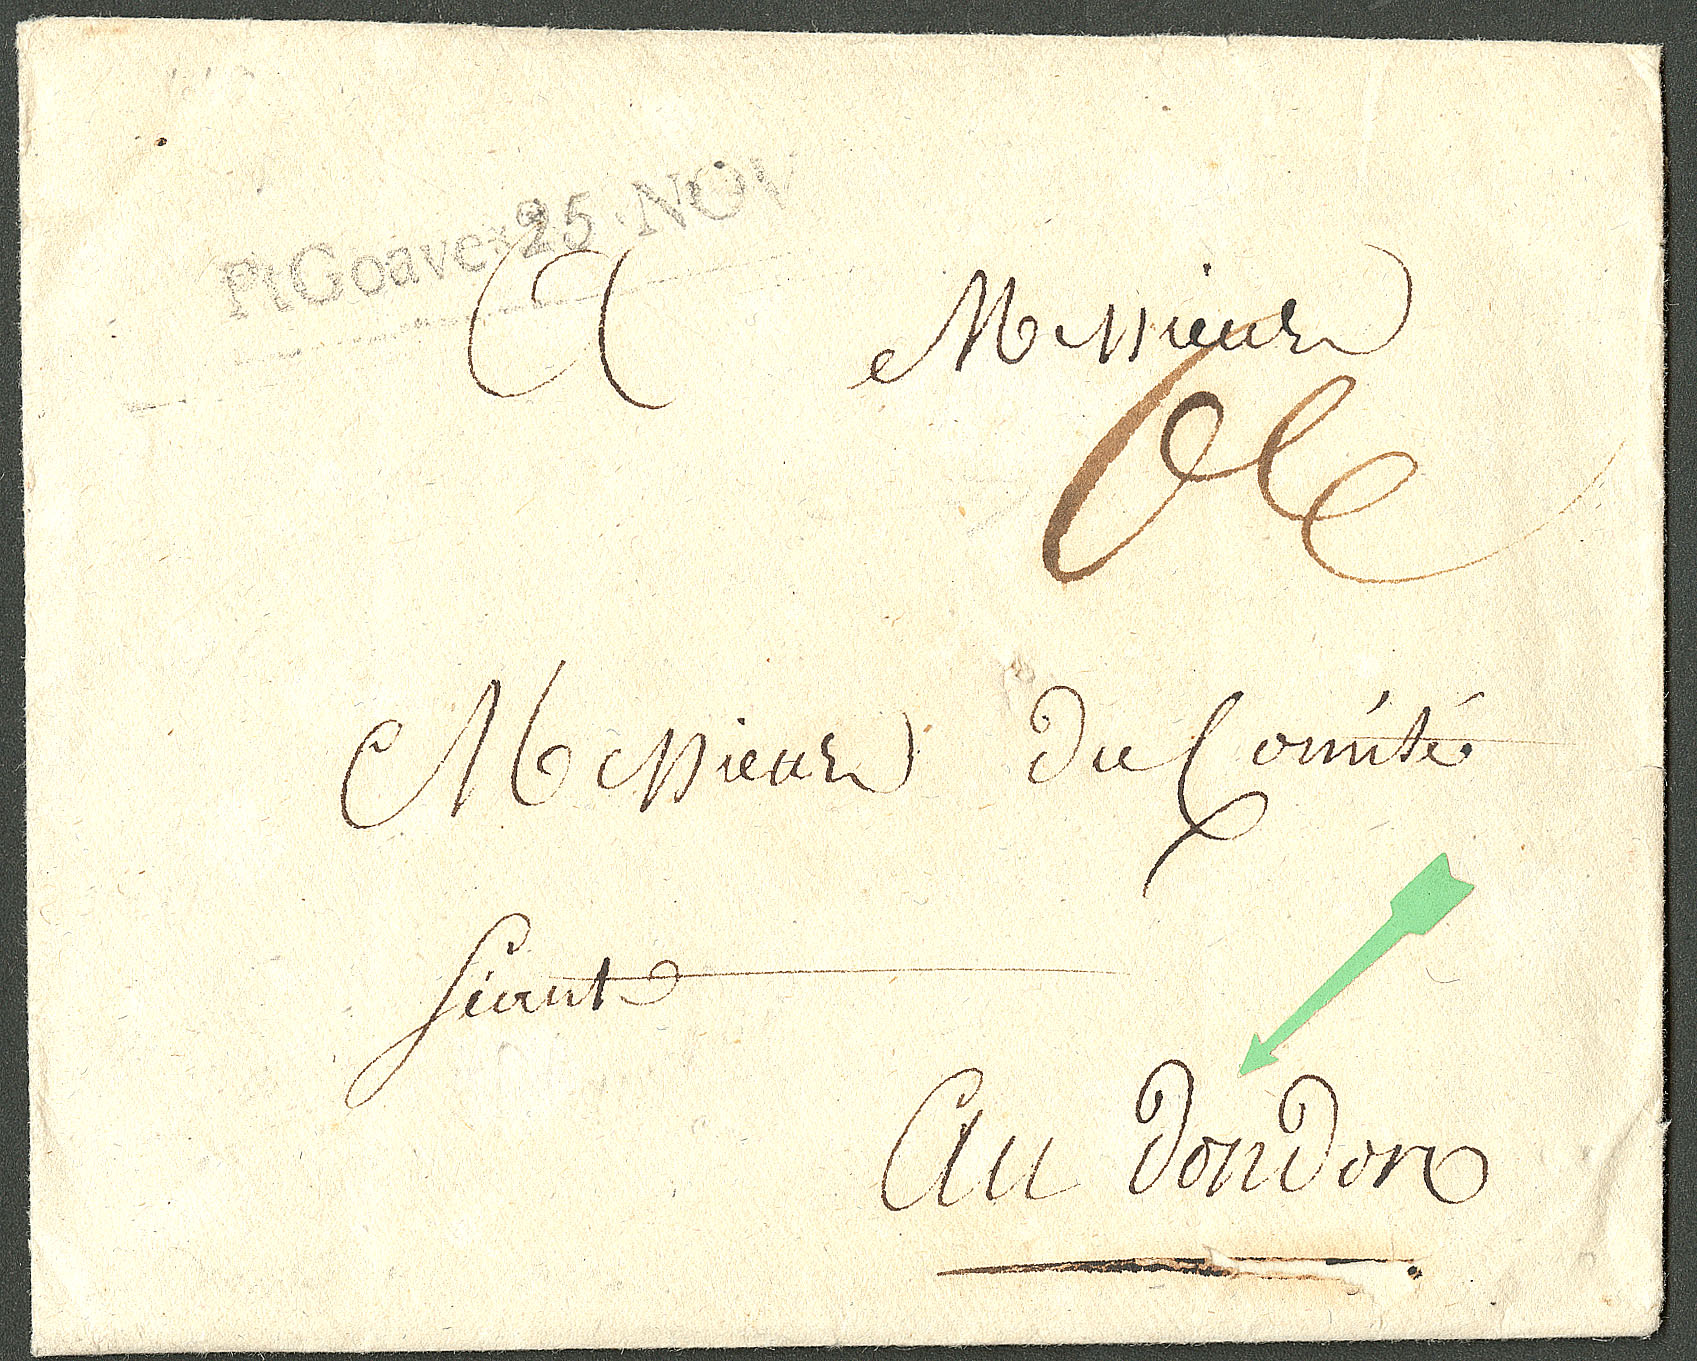 PtGoave 25 NOV
A Messieurs
Messieurs du Comité
séant
Au dondon